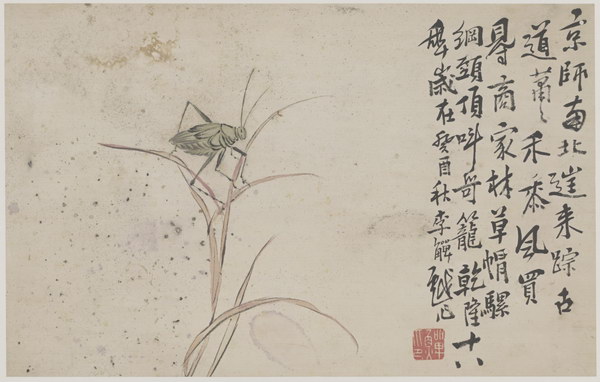 京師南北來踪古
道蕭々禾黍風買
㝵商家林草帽騾
綱頭頂叫哥籠乾隆十八
年歲在癸酉秋李觶戲作